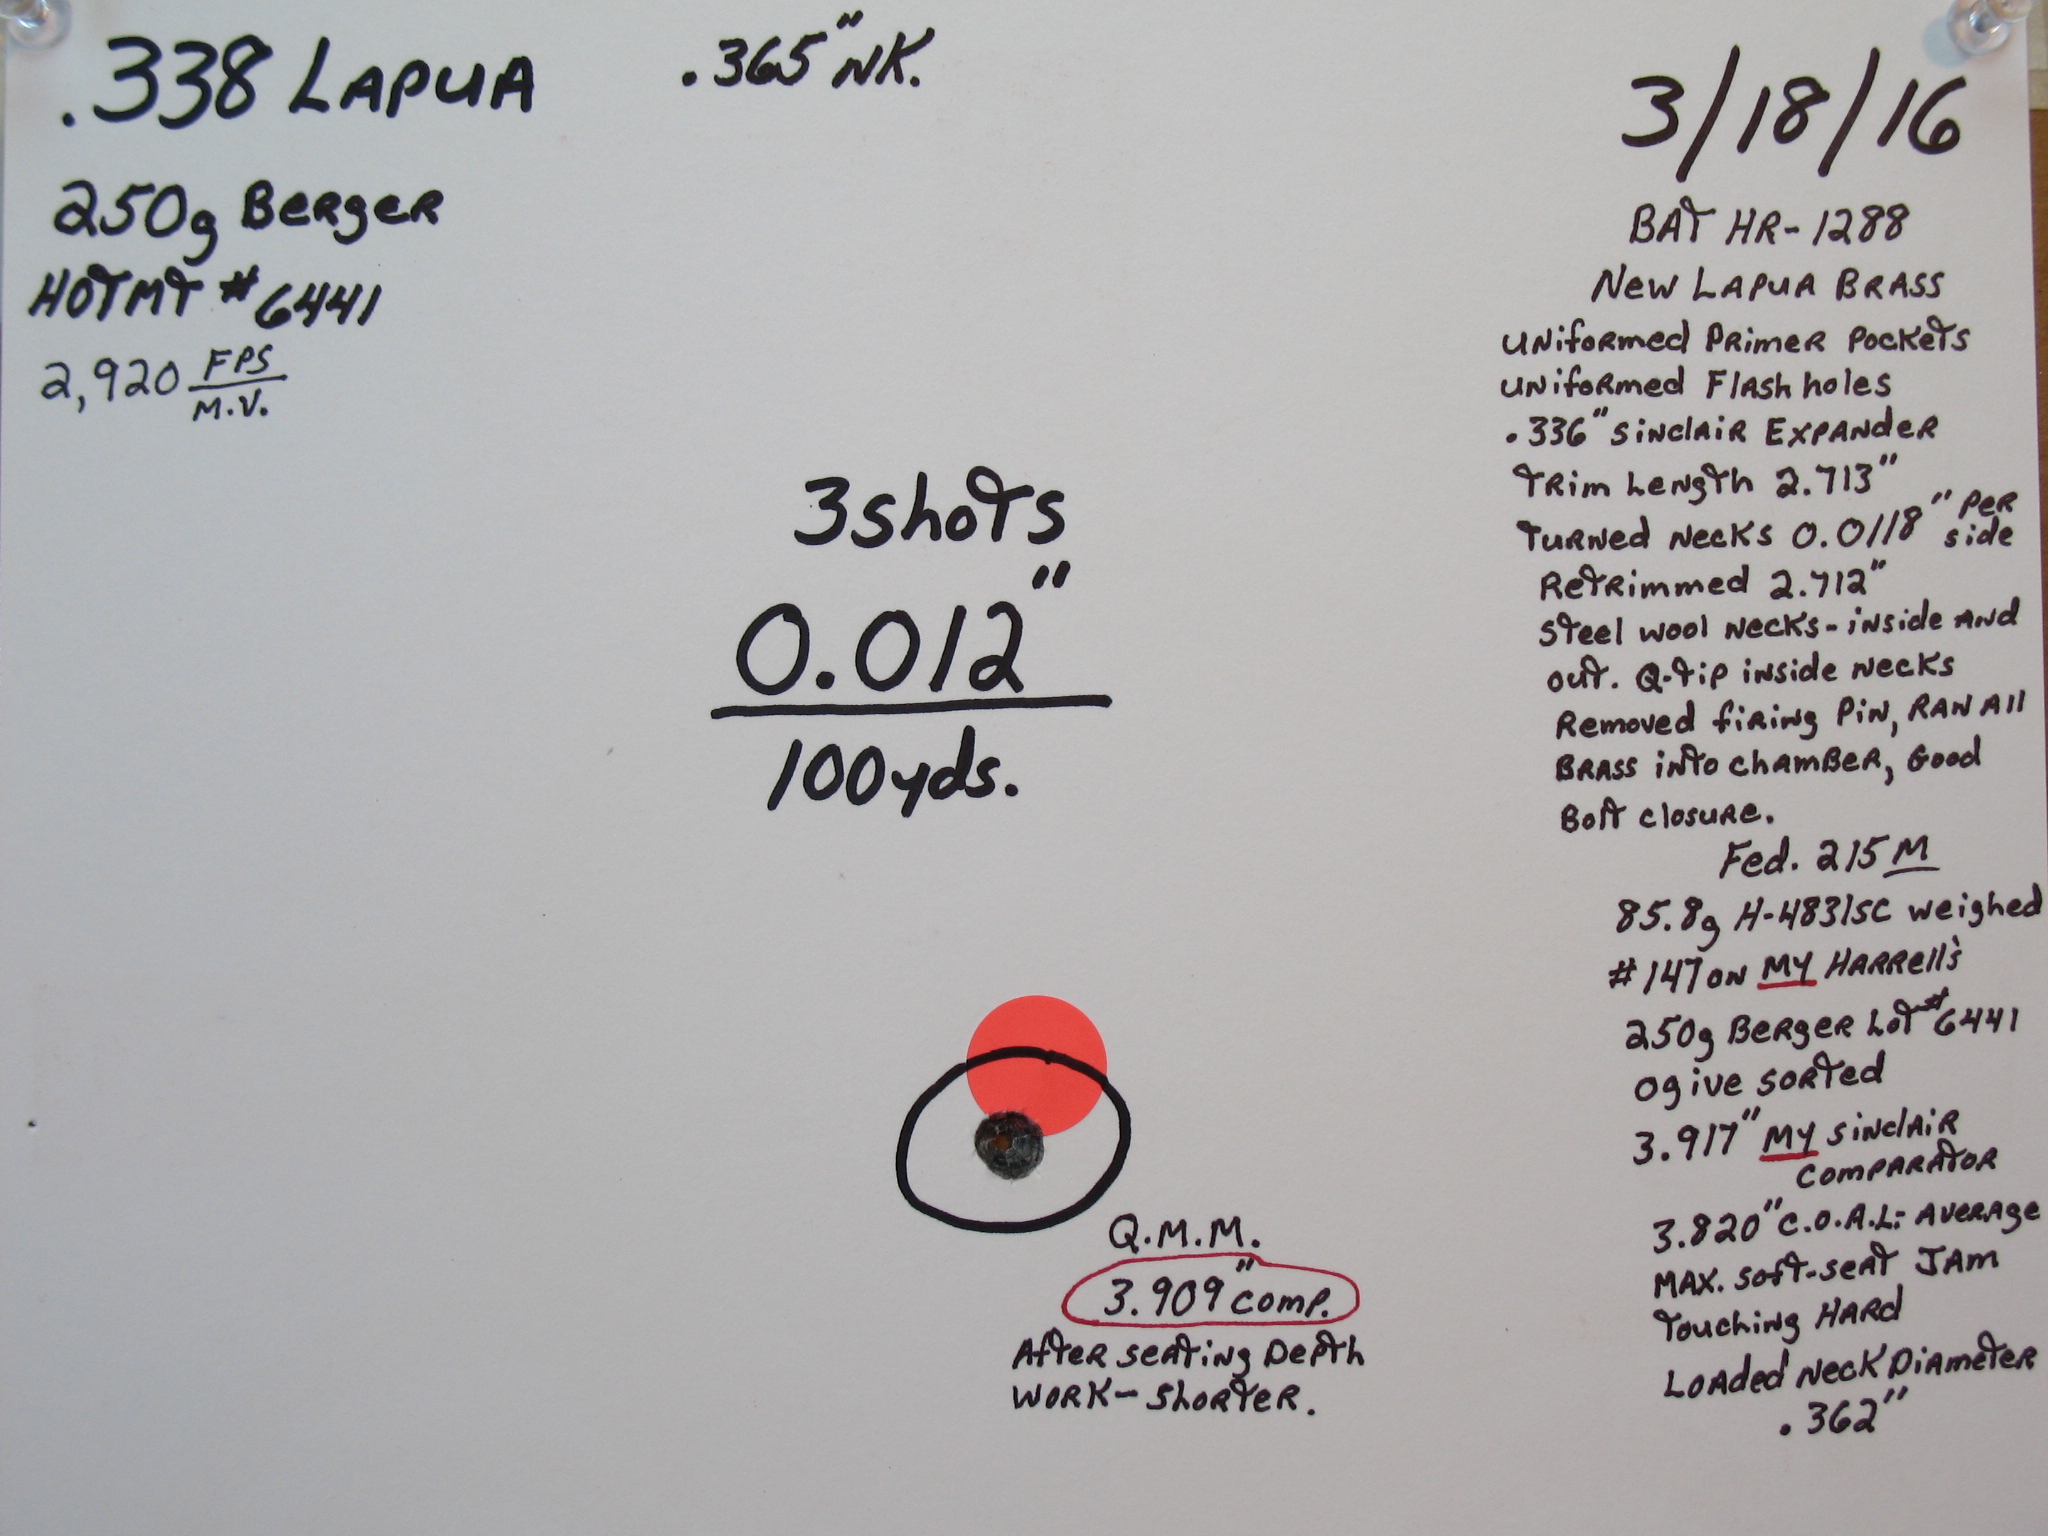 .338 LAPUA
.365" NK.
3/18/16
250g Berger
HOTMT #6441
2,920 FPS
M.V.
3 shots
0.012"
100yds.
BAT HR-1288
New LAPUA BRASS
UNiformed Primer Pockets
UNiformed Flash holes
.336" Sinclair Expander
Trim Length 2.713"
Turned Necks 0.0118" Per
side
Retrimmed 2.712"
Steel wool Necks - inside AND
out. Q-tip inside Necks
Removed firing Pin, RAN All
BRASS into chamber, Good
Bolt closure.
Fed. 215 M
85.8g H-4831SC weighed
#147 on MY HARRell's
250g Berger Lot #6441
Ogive sorted
3.917" MY Sinclair
Comparator
3.820" C.O.A.L.- Average
MAX. Soft-seat JAM
Touching HARd
Loaded Neck Diameter
.362"
Q.M.M.
3.909" comp.
After seating Depth
WORK - Shorter.